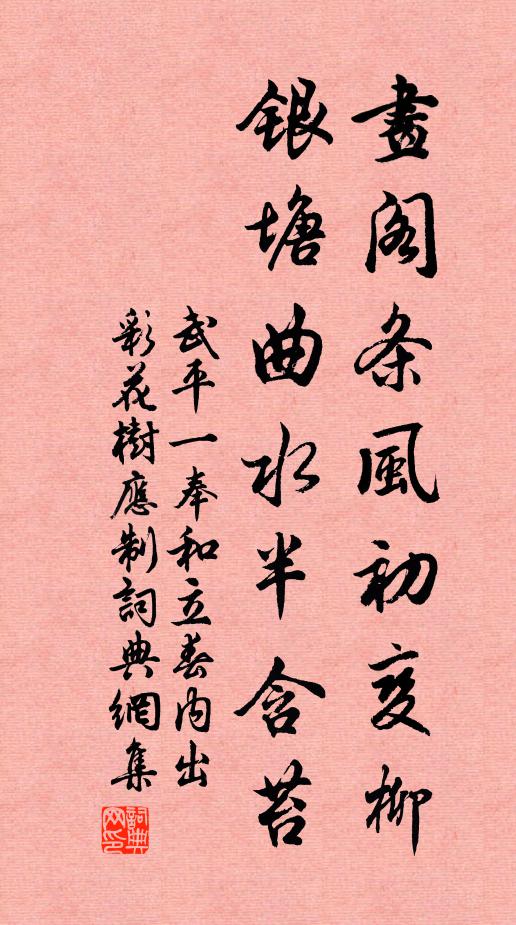 畫阁条風初变柳
銀塘曲水半含苔
武平一奉和立春内出
彩花樹應制詞典網集
詞典网印